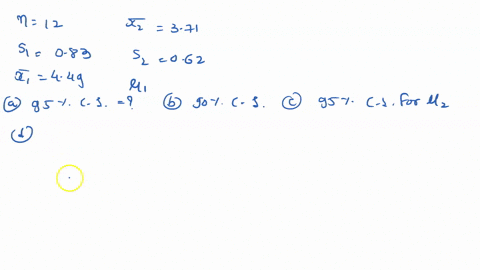 n=12 x̄₂ = 3.71
S₁ = 0.83 S₂ = 0.62
x̄₁ = 4.49 μ₁
(a) 95% C-I. =? (b) 90% C-I. (c) 95% C-I. For μ₂
(d)